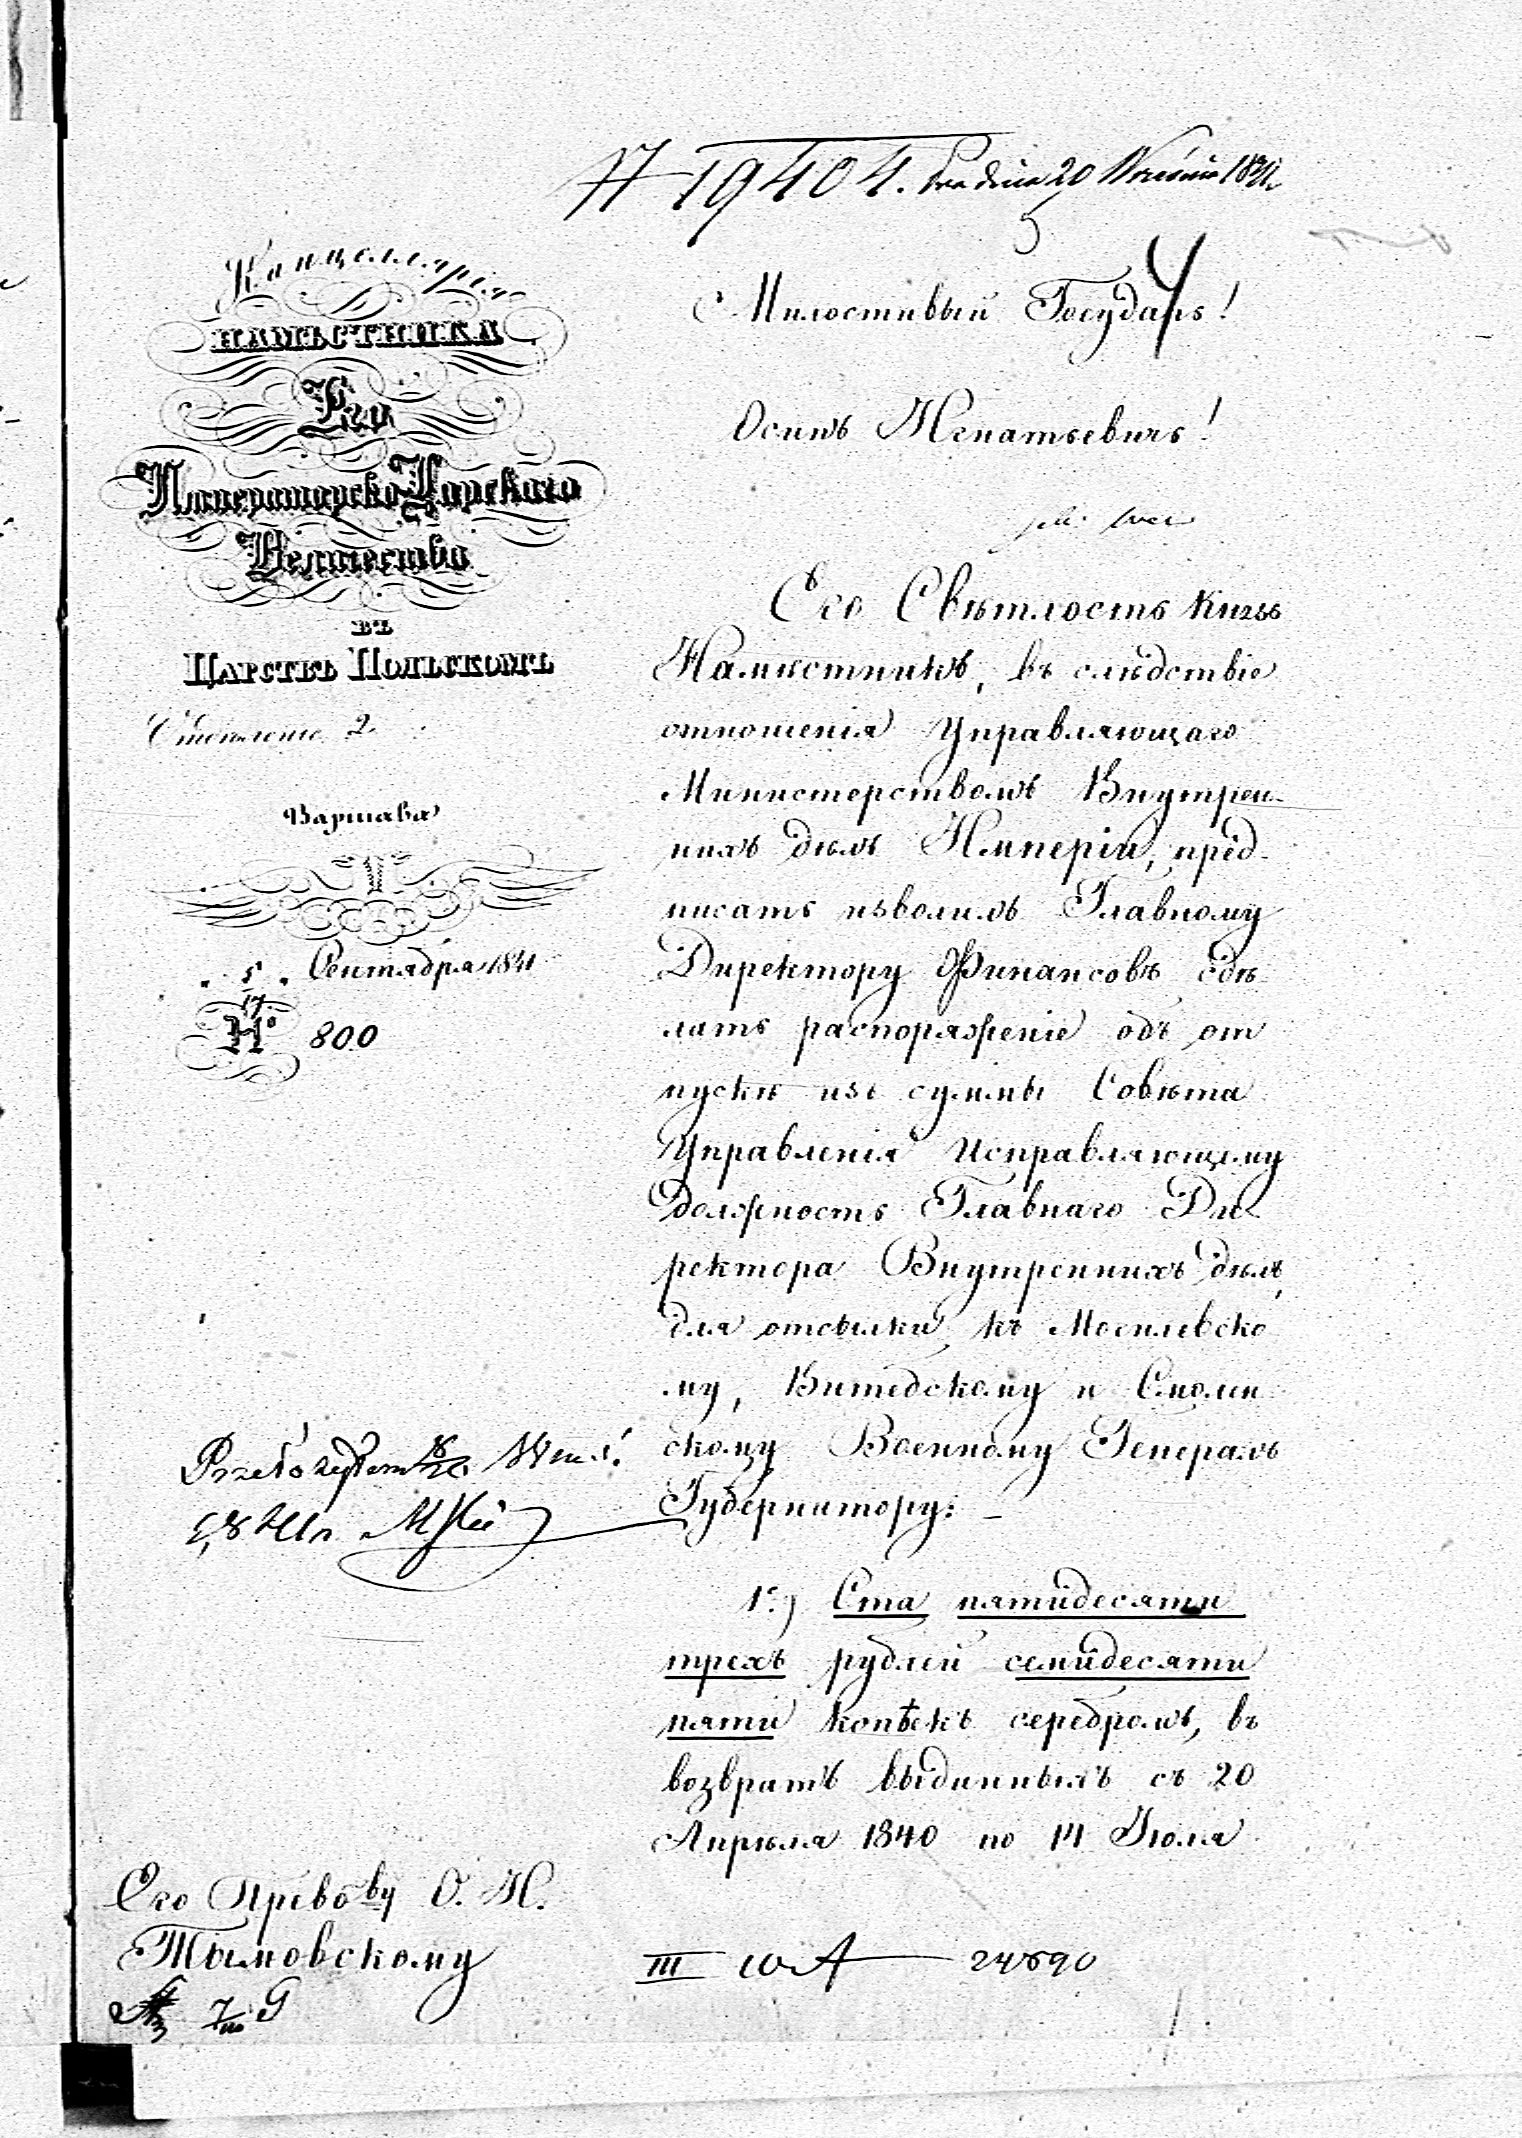 № 19404. Pra dnia 20 Września 1841
5
4
Канцеллярія
НАМѢСТНИКА
Его
Императорско-Царскаго
Величества
въ
Царствѣ Польскомъ
Отдѣленіе 2
Варшава
5/17 Сентября 1841
№ 800
Милостивый Государь!
Осипъ Игнатьевичъ!
Его Свѣтлость Князь
Намѣстникъ, въ слѣдствіе
отношенія Управляющаго
Министерствомъ Внутрен-
нихъ дѣлъ Имперіи, пред-
писать изволилъ Главному
Директору Финансовъ сдѣ-
лать распоряженіе объ от
пускѣ изъ суммы Совѣта
Управленія Исправляющему
должность Главнаго Ди-
ректора Внутреннихъ дѣлъ,
для отсылки къ Могилевско
му, Витебскому и Смолен
скому Военному Генералъ
Губернатору: —
1е) Ста пятидесяти
трехъ рублей семидесяти
пяти копѣекъ серебромъ, въ
возвратъ выданныхъ съ 20
Апрѣля 1840 по 14 Іюля
Его Прев-ву О. И.
Тымовскому
III 10 A — 24890